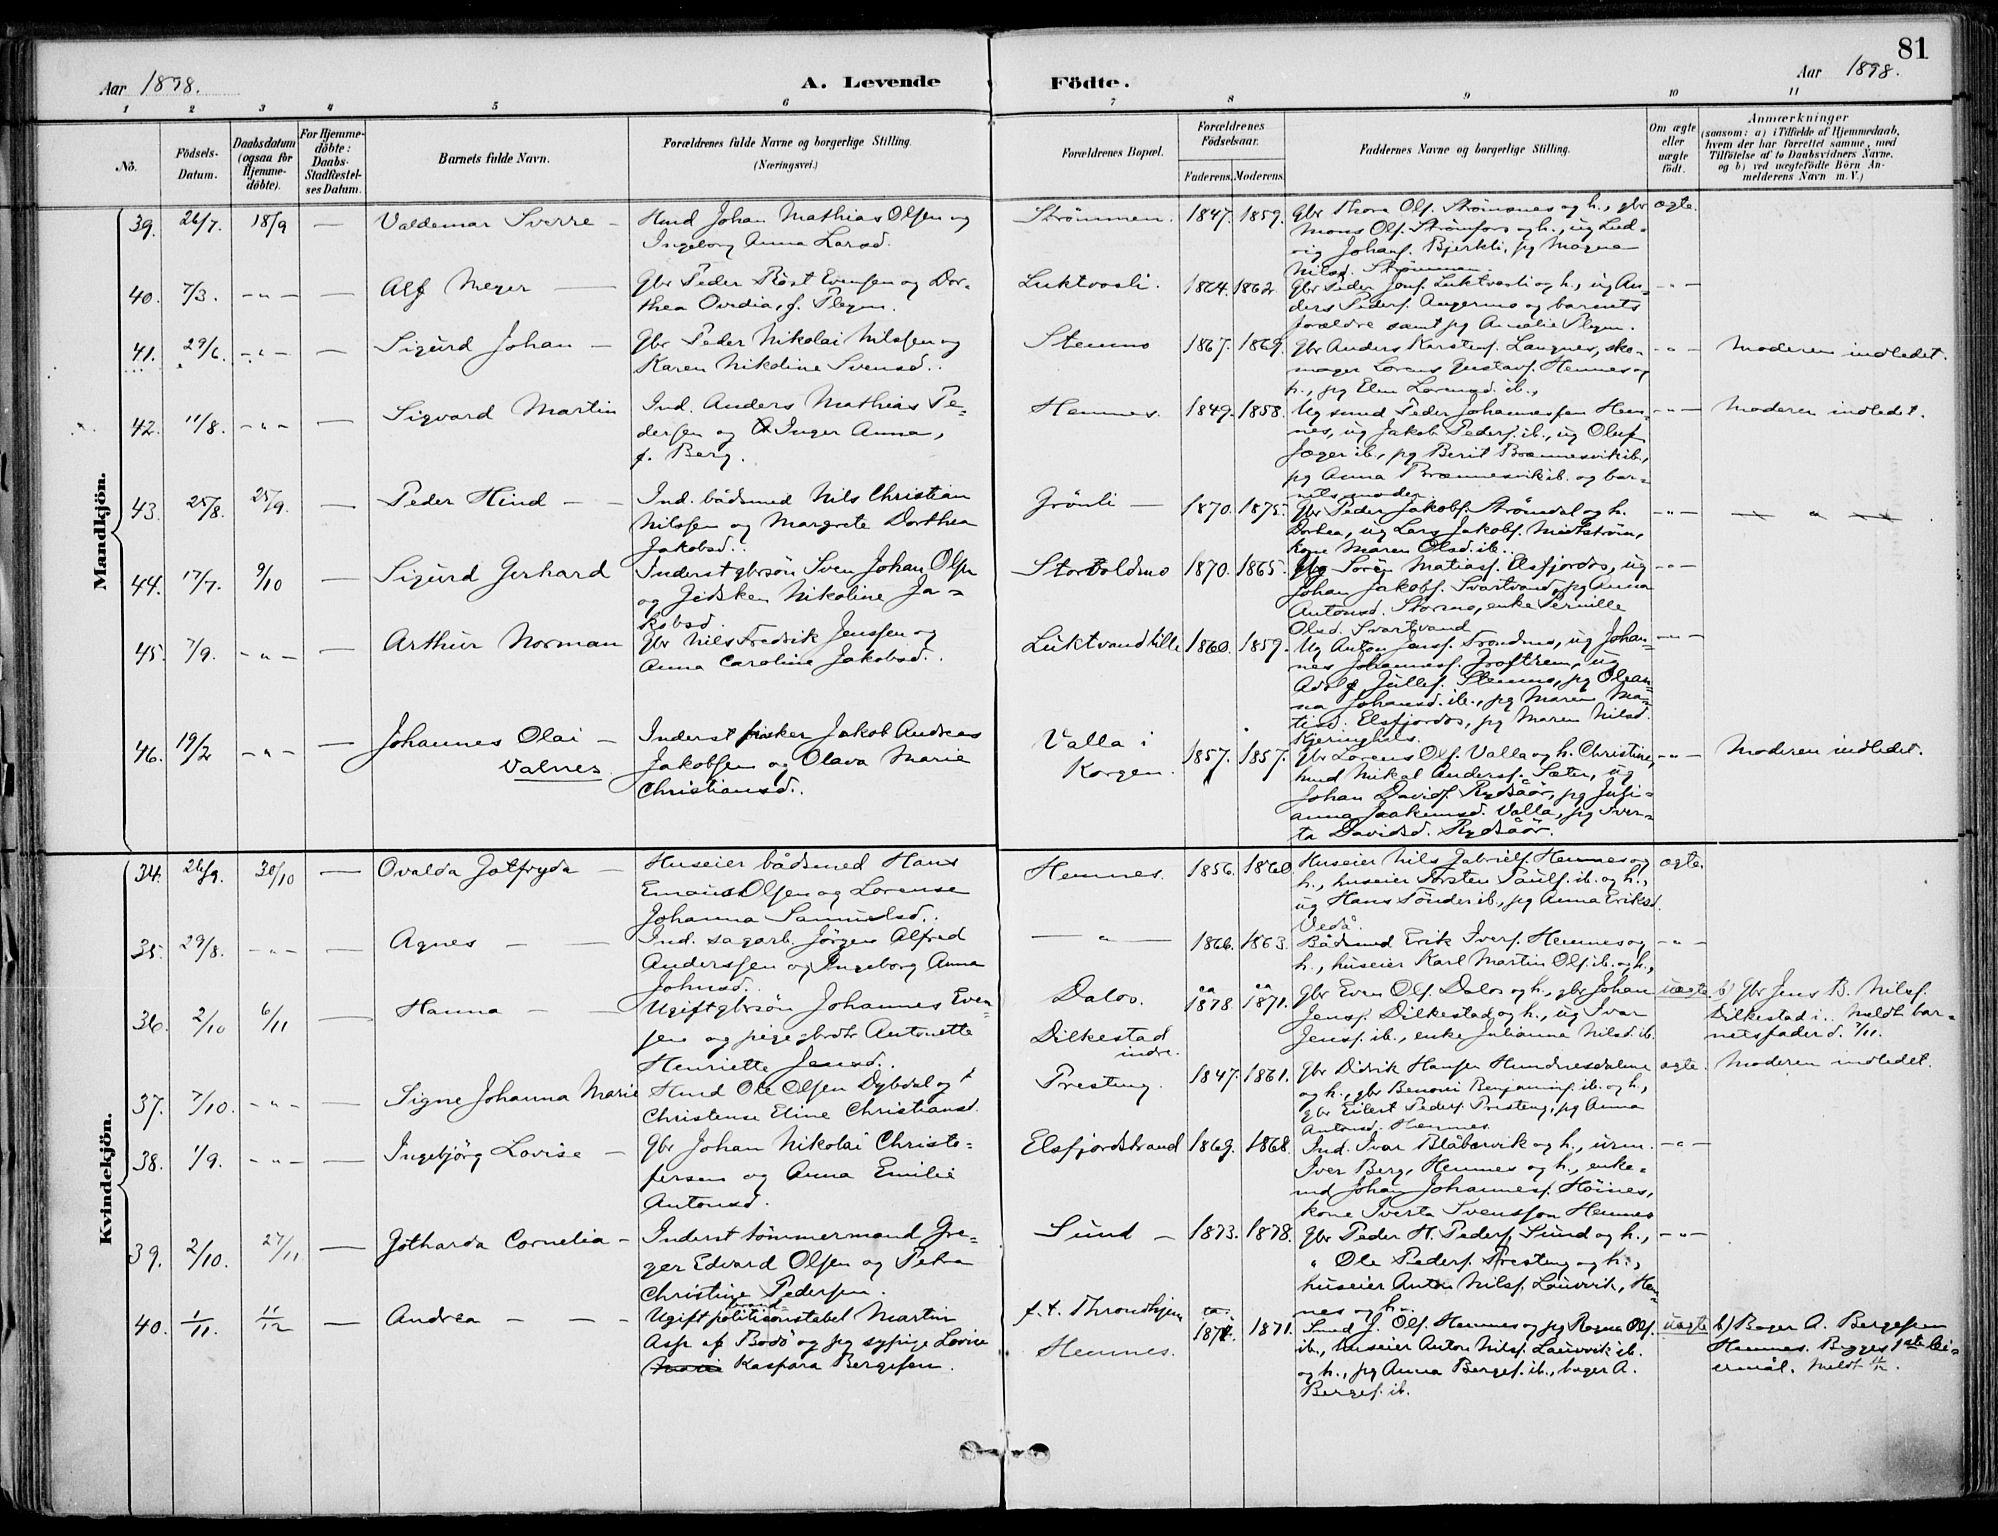 81
Aar 1898.
A. Levende Födte.
Aar 1898.
1 2 3 4 5 6 7 8 9 10 11
No.
Födsels-Datum.
Daabsdatum (ogsaa for Hjemmedöbte).
For Hjemmedöbte: Daabs-Stadfæstelses Datum.
Barnets fulde Navn.
Forældrenes fulde Navne og borgerlige Stilling.
(Næringsvei.)
Forældrenes Bopæl.
Forældrenes Födselsaar.
Faderens. Moderens.
Faddernes Navne og borgerlige Stilling.
Om ægte eller uægte födt.
Anmærkninger
(saasom: a) i Tilfælde af Hjemmedaab, hvem der har forrettet samme, med Tilföielse af to Daabsvidners Navne, og b) ved uægtefödte Börn Anmelderens Navn m. V.)
Mandkjön.
39. 26/7. 18/9 — Valdemar Sverre –
Hmd Johan Mathias Olsen og
Ingeborg Anna Larsd.
Strömmen. 1847. 1859.
gbr Thore Ols. Strömsnes og h., gbr
Mons Ols. Strömfors og h., ug Lud-
vig Johans. Bjerkli, pg Magna
Nilsd. Strömmen.
ægte.
40. 7/3. -„- — Alf Meyer —
Gbr Peder Röst Evensen og Dor-
thea Ovedia, f. Plegen.
Luktvasli. 1864. 1862.
Gbr Peder Jons. Luktvasli og h., ug An-
ders Peders. Angermo og barnets
forældre samt pg Amalie Plegen.
-„-
41. 29/6. -„- — Sigurd Johan –
Gbr Peder Nikolai Nilssen og
Karen Nikoline Svensd..
Stenmo 1867. 1869.
Gbr Anders Karstens. Langnes, sko-
mager Lorens Gustavs. Hemnes og
h., pg Elen Lorensd. ib.,
-„- Moderen indledet.
42. 11/8. -„- — Sigvard Martin
Ind. Anders Mathias Pe-
dersen og Inger Anna,
f. Berg.
Hemnes. 1849. 1858.
Ug smed Peder Johannessen Hem-
nes, ug Jakob Peders. ib., ug Oluf
Jæger ib., pg Berit Brennesvik ib.,
pg Anna Brennesvik ib. og bar-
nets moder.
-„- Moderen indledet.
43. 25/8. 25/9. — Peder Hind –
Ind. bådsmed Nils Christian
Nilssen og Margrete Dorthea
Jakobsd..
Grönli — 1870. 1875.
Gbr Peder Jakobs. Strömdal og h.
Dorthea, ug Lars Jakobs. Midtström,
kone Maren Olsd. ib..
-„- — „ —
44. 17/7. 9/10 — Sigurd Gerhard
Inderst gbrsön Sven Johan Olsen
og Gidsken Nikoline Ja-
kobsd.
Storvoldmo 1870. 1865.
Gbr Sören Matias. Elsfjordos, ug
Johan Jakobs. Svartvand, pg Anna
Antonsd. Stormo, enke Pernille
Olsd. Svartvand
-„-
45. 7/9. -„- — Arthur Norman
Gbr Nils Fredrik Jenssen og
Anna Caroline Jakobsd..
Luktvand lille 1860. 1859.
Ug Anton Jens. Trondmo, ug Johan-
nes Johanness. Groftrem, ug
Adolf Jülles. Stenmo, pg Olean-
na Johansd. ib., pg Maren Ma-
tisd. Elsfjordos, pg Maren Nilsd.
Kjeringhals.
-„-
46. 19/2 -„- — Johannes Olai –
Valnes.
Inderst fisker Jakob Andreas
Jakobsen og Olava Marie
Christiansd..
Valla i
Korgen. 1857. 1857.
Gbr Lorens Ols. Valla og h. Christine,
hmd Mikal Anders. Sæter, ug
Johan Davids. Rydsåör, pg Juli-
anna Joakimsd. Valla, pg Iver-
ta Davidsd. Rydsåör.
-„- Moderen indledet.
Kvindekjön.
34. 26/9. 30/10 — Ovalda Jotfryda –
Huseier bådsmed Hans
Emanuel Olsen og Lorense
Johanna Samuelsd..
Hemnes. 1856. 1860.
Huseier Nils Gabriels. Hemnes og
h., huseier Torsten Pauls. ib. og h.,
ug Hans Sönder ib., pg Anna Eriksd.
Vedå.
ægte.
35. 29/8. -„- — Agnes – –
Ind. sagarb. Jörgen Alfred
Anderssen og Ingeborg Anna
Johnsd..
— „ — 1866. 1863.
Bådsmed Erik Ivers. Hemnes og
h., huseier Karl Martin Ols. ib. og h.,
-„-
36. 2/10 6/11 — Hanna – –
Ugift gbrsön Johannes Even-
sen og pige gbrdtr Antonette
Henriette Jensd..
Dalos.
Dilkestad
indre. ca 1878 ca 1871.
Gbr Even Ols. Dalos og h., gbr Johan
Jens. Dilkestad og h., ug Ivar
Jens. ib., enke Julianna Nilsd. ib.
uægte b) Gbr Jens B. Nils.
Dilkestad i.. Meldt bar-
netsfader d. 7/11.
37. 7/10. -„- Signe Johanna Marie
Hmd Ole Olsen Dybdal og
Christense Eline Christiansd.
Presteng. 1847. 1861.
Gbr Didrik Hansen Hundnesdalmo
og h., gbr Benoni Benjamins. ib. og h.,
gbr Eilert Peders. Presteng, pg Anna
Antonsd. Hemnes.
ægte. Moderen indledet.
38. 1/9. -„- — Ingebjörg Lovise –
Gbr Johan Nikolai Christo-
fersen og Anna Emilie
Antonsd.
Elsfjordstrand 1869. 1868.
Ind. Ivar Blåbærvik og h., urm.
Iver Berg, Hemnes og h., enke-
md Johan Johanness. Höines,
kone Iverta Svensson Hemnes
-„-
39. 2/10. 27/11 — Gotharda Cornelia –
Inderst tömmermand Gre-
ger Edvard Olsen og Petra
Christine Pedersen.
Sund – 1873. 1878.
Gbr Peder H. Peders. Sund og h.,
„ Ole Peders. Presteng og h.,
huseier Anton Nils. Lauvvik, Hem-
nes og h.
-„-
40. 1/11. 11/12 — Andrea – –
Ugift politikonstabel Martin
Asp af Bodö og pg sypige Lovise
Kaspara Bergesen.
f. t. Throndhjem
Hemnes. ca. 1871. 1871.
Smed J. Ols. Hemnes og pg Ragna Ols.
ib., huseier Anton Nils. Lauvvik ib.
og h., pg Anna Berges. ib., bager A.
Berges. ib.
uægte b) Bager A. Bergesen
Hemnes. Begges 1ste lei-
ermål. Meldt 11/12